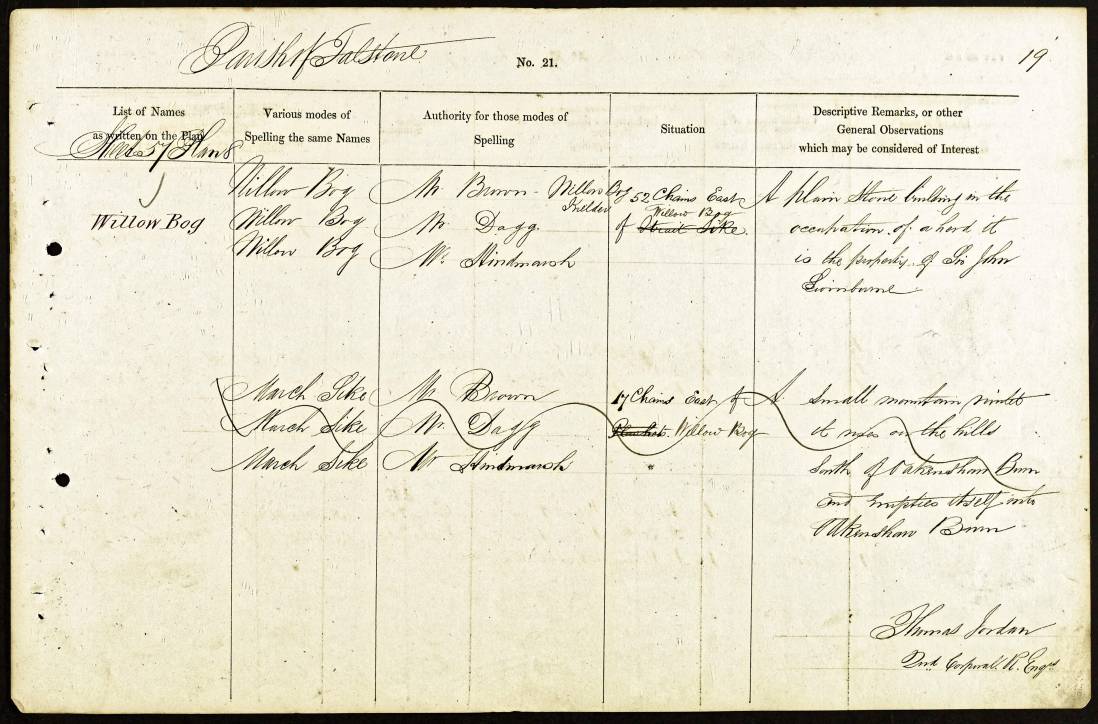 Parish of Falstone
No. 21.
19
List of Names
as written on the Plan
Various modes of
Spelling the same Names
Authority for those modes of
Spelling
Situation
Descriptive Remarks, or other
General Observations
which may be considered of Interest
Sheet 57 Plan 8
Willow Bog
Willow Bog
Willow Bog
Willow Bog
Mr Brown - Willow Bog
Kielder
Mr Dagg
Mr Hindmarsh
52 Chains East
Willow Bog
of Strait Sike
A plain Stone building in the
occupation of a herd it
is the property of Sir John
Swinburne
March Sike
March Sike
March Sike
Mr Brown
Mr Dagg
Mr Hindmarsh
17 Chains East of
Willow Bog
"
A Small mountain rivulet
it rises on the hills
South of Oakenshaw Burn
and Empties itself into
Oakenshaw Burn
Thomas Jordan
2nd Corporal R. Engrs